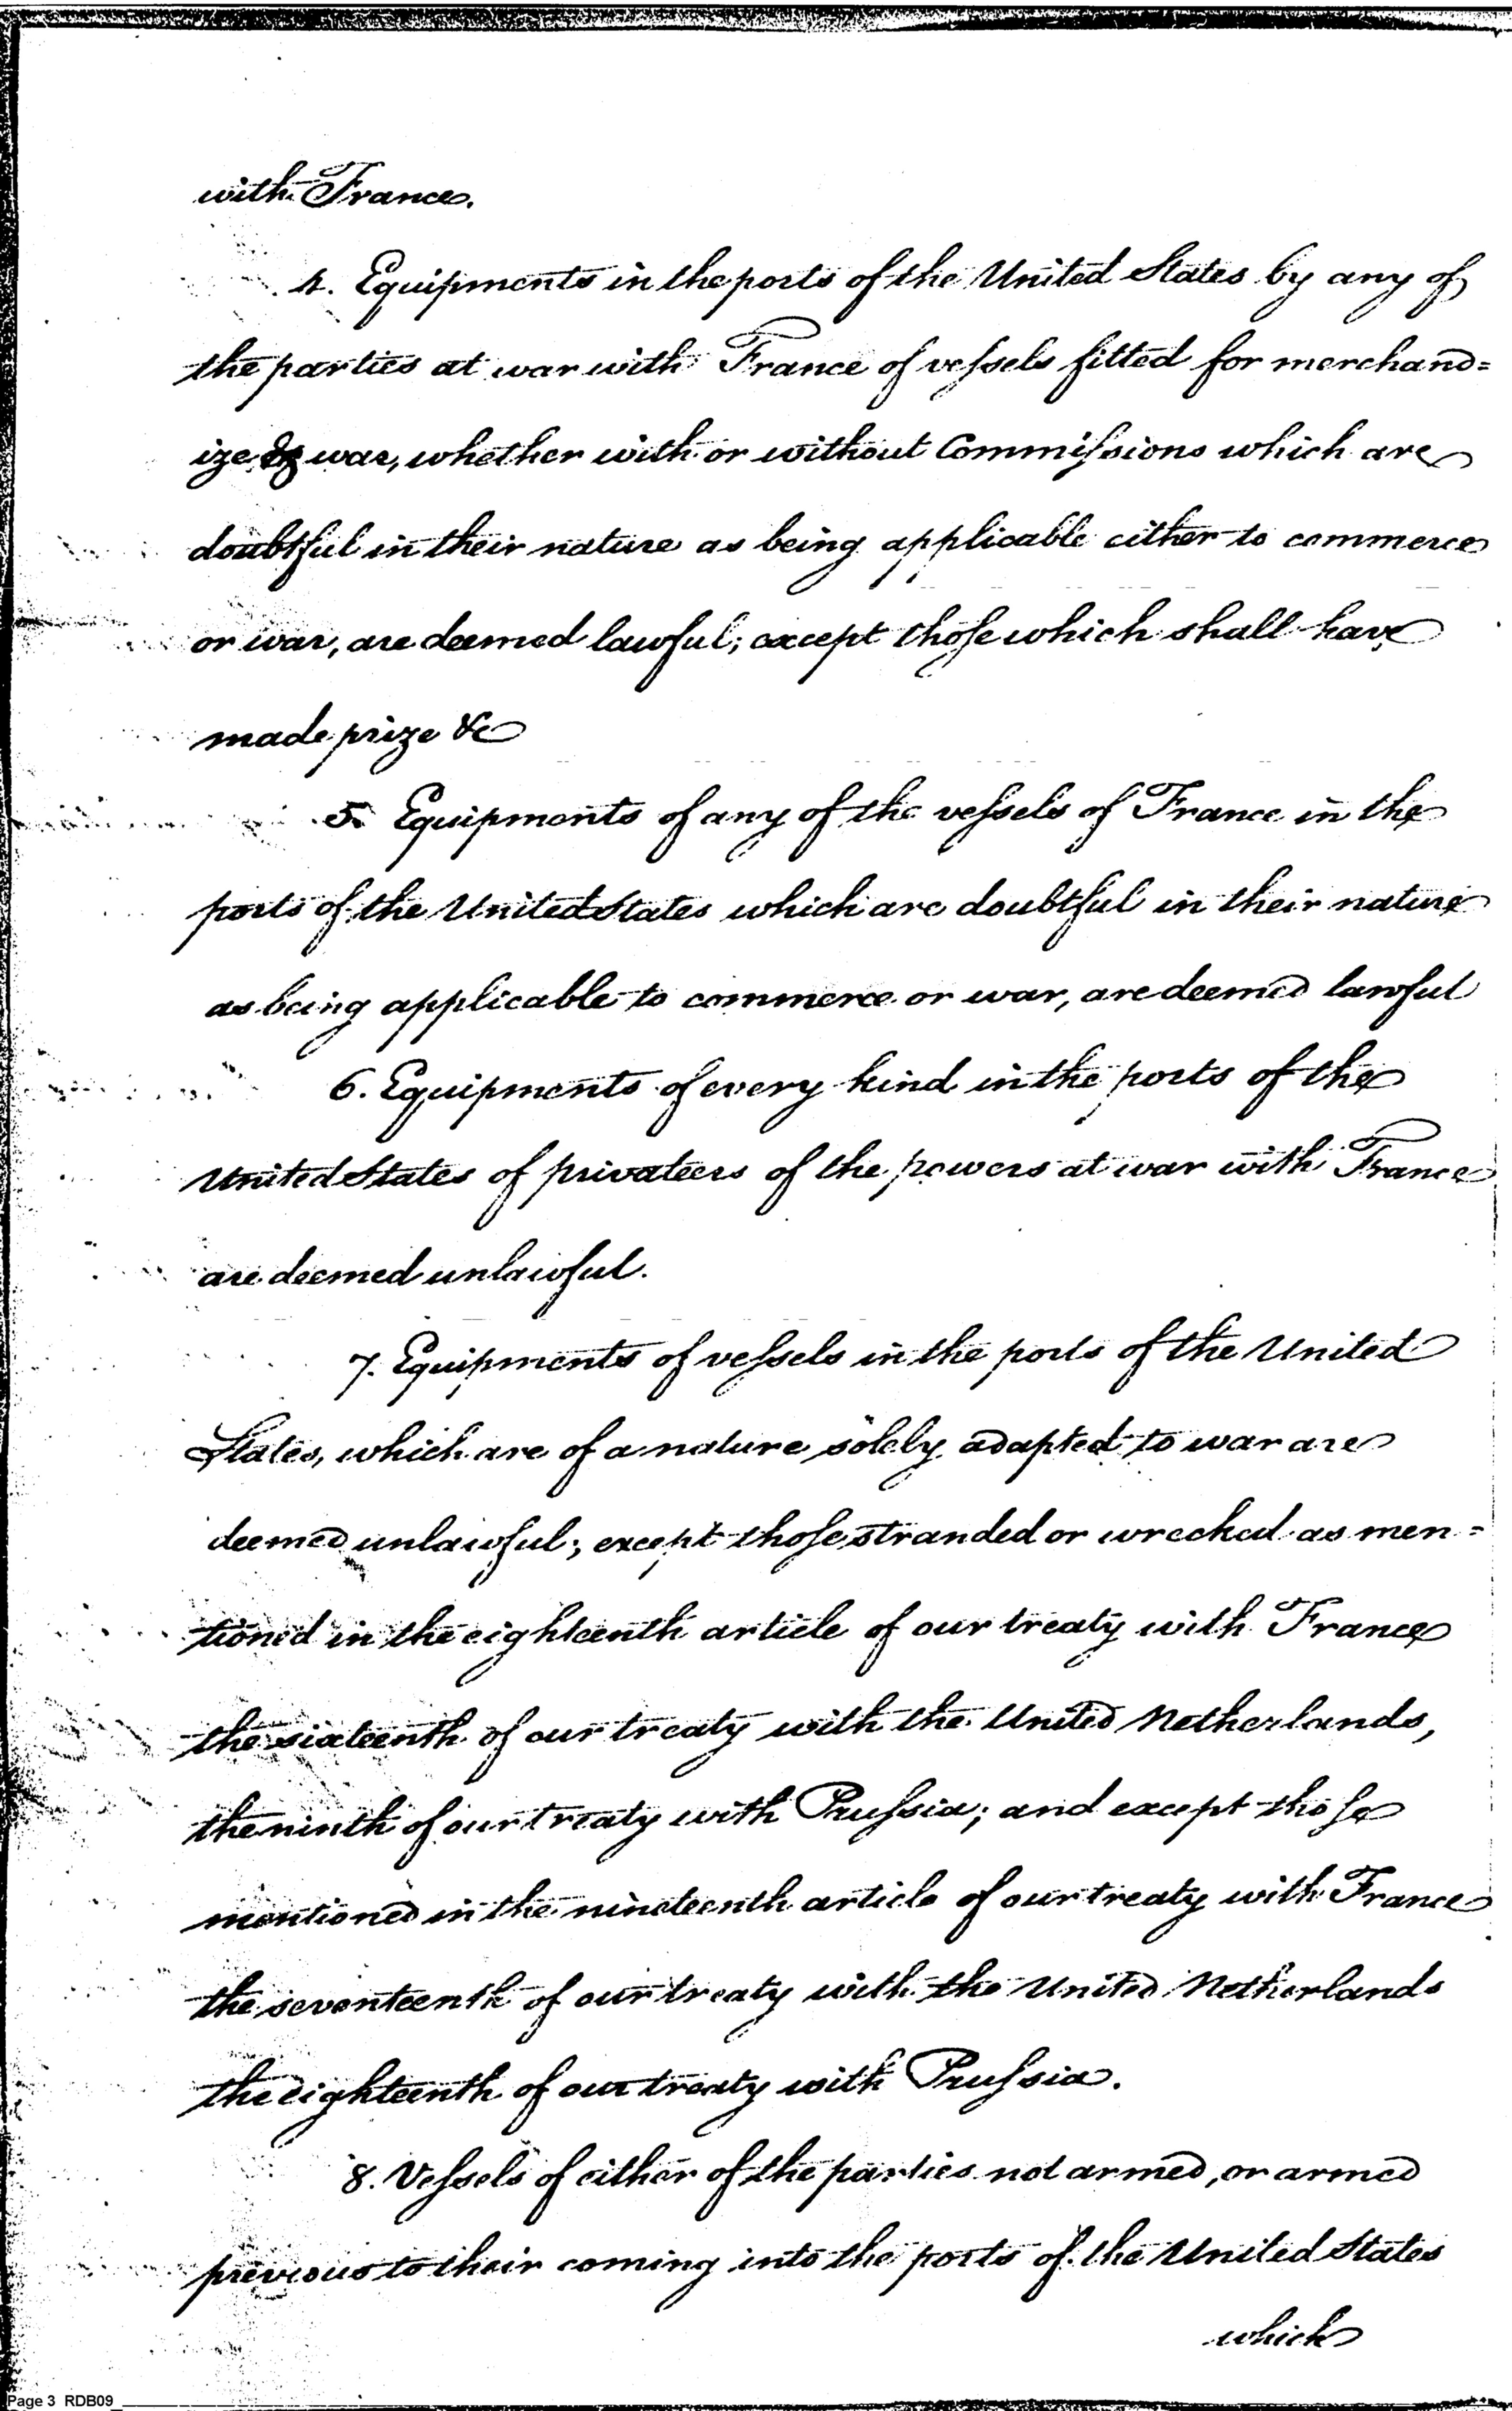 with France.
4. Equipments in the ports of the United States by any of
the parties at war with France of vessels fitted for merchand=
ize & war, whether with or without Commissions which are
doubtful in their nature as being applicable either to commerce
or war, are deemed lawful; except those which shall have
made prize &c
5. Equipments of any of the vessels of France in the
ports of the United States which are doubtful in their nature
as being applicable to commerce or war, are deemed lawful
6. Equipments of every kind in the ports of the
United States of privateers of the powers at war with France
are deemed unlawful.
7. Equipments of vessels in the ports of the United
States, which are of a nature solely adapted to war are
deemed unlawful; except those stranded or wrecked as men=
tioned in the eighteenth article of our treaty with France
the sixteenth of our treaty with the United Netherlands,
the ninth of our treaty with Prussia; and except those
mentioned in the nineteenth article of our treaty with France
the seventeenth of our treaty with the United Netherlands
the eighteenth of our treaty with Prussia.
8. Vessels of either of the parties not armed, or armed
previous to their coming into the ports of the United States
which
Page 3 RDB09